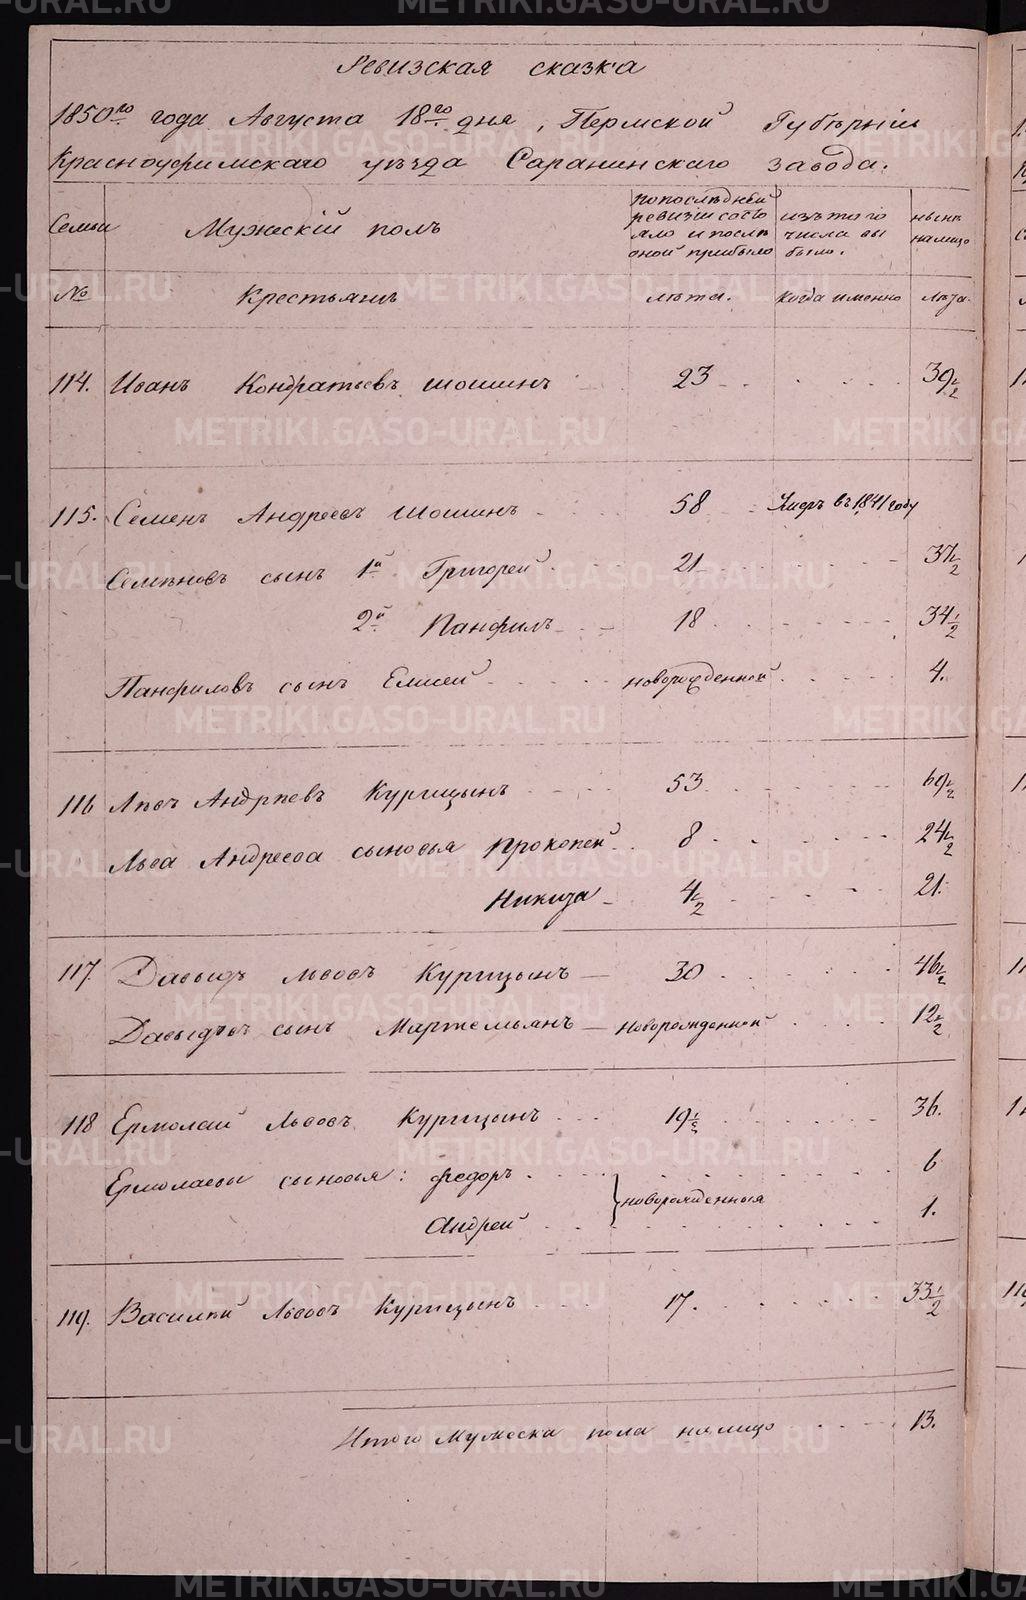 Ревизская сказка
1850го года Августа 18го дня, Пермской Губѣрніи
Красноуфимскаго уѣзда Саранинскаго завода.
Семьи Мужескій полъ попослѣдней ревизіи состояло и послѣ оной прибыло изъ того числа выбыло. нынѣ налицо
№ Крестьянъ лѣта. когда именно лѣта.
114. Иванъ Кондратьевъ Шошинъ 23 39 1/2
115. Семенъ Андреевъ Шошинъ 58 Умеръ въ 1841 году
Семѣновъ сынъ 1й Григорей 21 37 1/2
2й Панфилъ 18 34 1/2
Панфиловъ сынъ Елисей новорожденной 4.
116 Левъ Андрѣевъ Курицынъ 53 69 1/2
Льва Андреева сыновья Прокопей 8 24 1/2
Никита 4 1/2 21.
117. Давыдъ Львовъ Курицынъ 30 46 1/2
Давыдовъ сынъ Мартемьянъ Новорожденной 12 1/2
118 Ермолай Львовъ Курицынъ 19 1/2 36.
Ермолаевы сыновья: Федоръ 6
новорожденныя
Андрей 1.
119. Василѣй Львовъ Курицынъ 17. 33 1/2
Итого Мужеска пола налицо 13.
METRIKI.GASO-URAL.RU